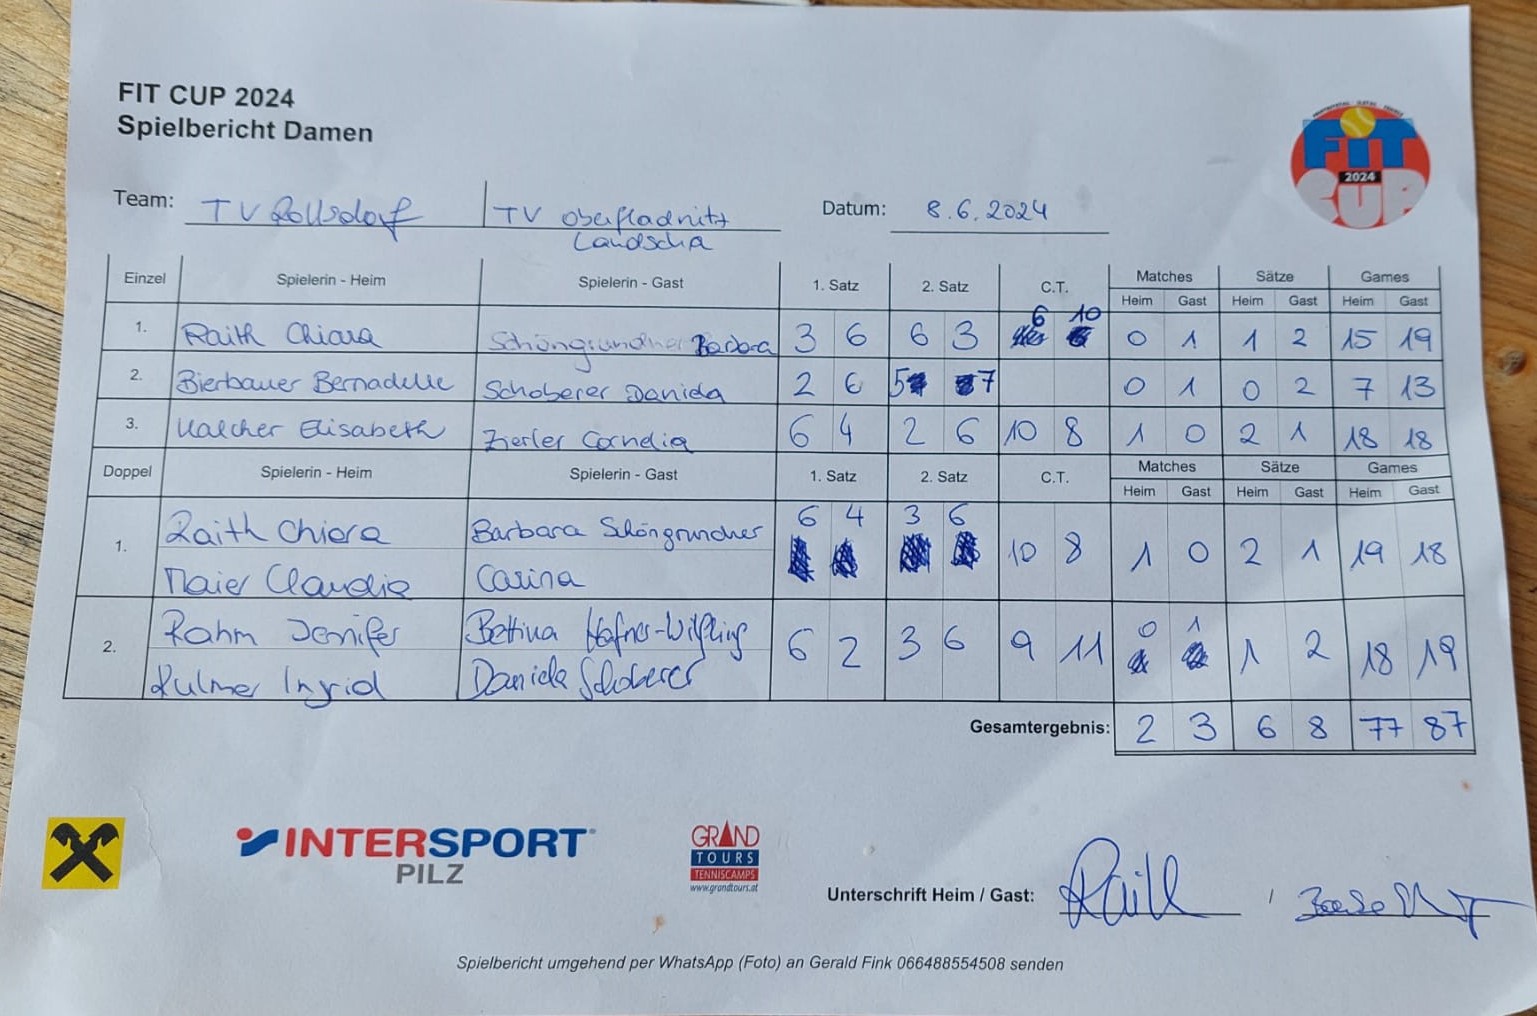 FIT CUP 2024
Spielbericht Damen
FIT
2024
CUP
Team: TV Rollsdorf TV Oberfladnitz Datum: 8.6.2024
Landscha
Einzel Spielerin - Heim Spielerin - Gast 1. Satz 2. Satz C.T. Matches Sätze Games
Heim Gast Heim Gast Heim Gast
1. Raith Chiara Schöngrundner Barbara 3 6 6 3 6 10 0 1 1 2 15 19
2. Bierbauer Bernadette Schoberer Daniela 2 6 5 7 0 1 0 2 7 13
3. Kalcher Elisabeth Zierler Cornelia 6 4 2 6 10 8 1 0 2 1 18 18
Doppel Spielerin - Heim Spielerin - Gast 1. Satz 2. Satz C.T. Matches Sätze Games
Heim Gast Heim Gast Heim Gast
1. Raith Chiara Barbara Schöngrundner 6 4 3 6 10 8 1 0 2 1 19 18
Maier Claudia Carina
2. Rahm Jennifer Bettina Hafner-Wilfling 6 2 3 6 9 11 0 1 1 2 18 19
Kulmer Ingrid Daniela Schoberer
Gesamtergebnis: 2 3 6 8 77 87
INTERSPORT
PILZ
GRAND
TOURS
TENNISCAMPS
www.grandtours.at
Unterschrift Heim / Gast: Raith /
Spielbericht umgehend per WhatsApp (Foto) an Gerald Fink 066488554508 senden